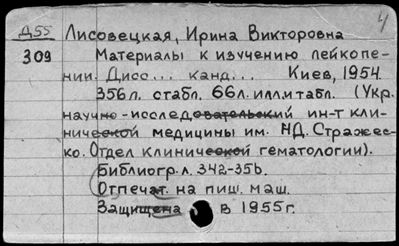 4
Д55 Лисовецкая, Ирина Викторовна
309 Материалы к изучению лейкопе-
нии. Дисс... канд... Киев, 1954.
356л. стабл. 66л. илл.и табл. (Укр.
научно-исследовательский ин-т кли-
нической медицины им. Н.Д. Стражес-
ко. Отдел клинической гематологии).
Библиогр. л. 342-356.
Отпечат. на пиш. маш.
Защищена в 1955г.